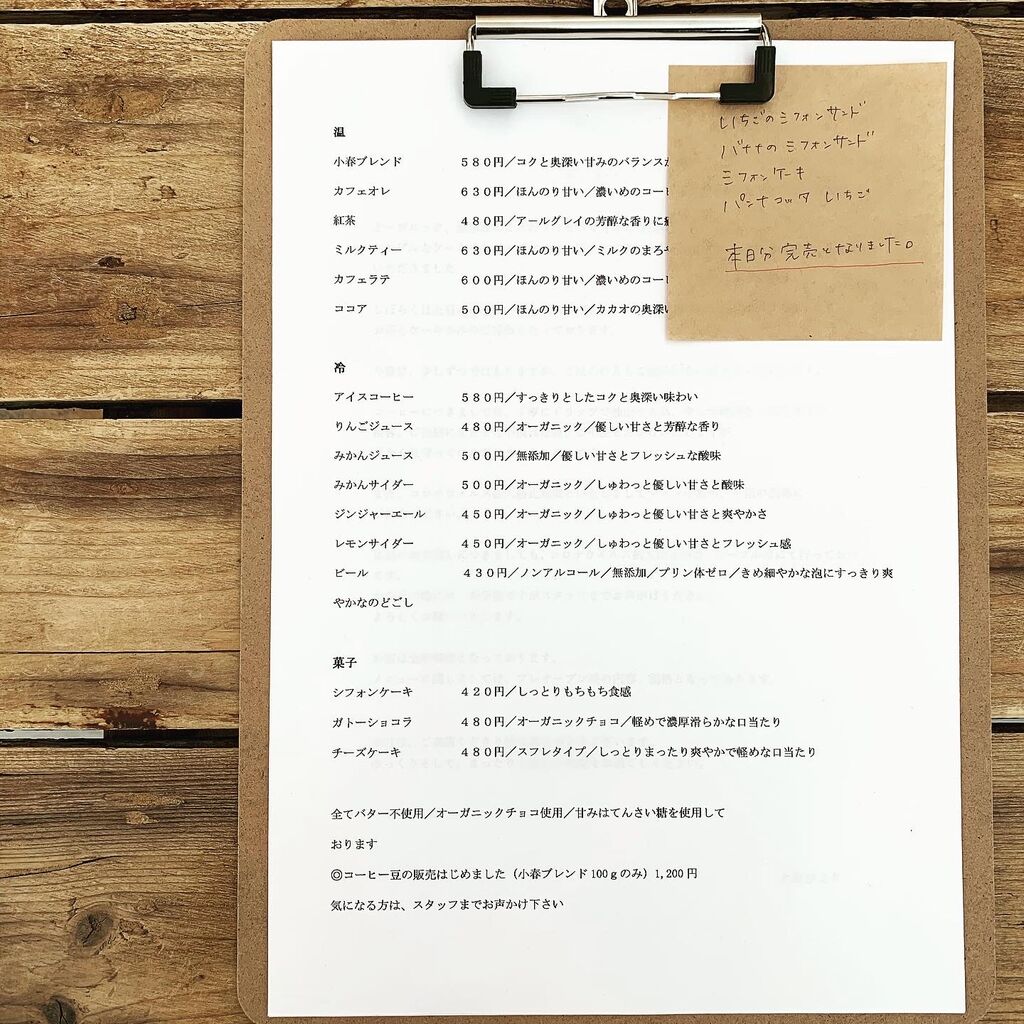 温
小春ブレンド　５８０円／コクと奥深い甘みのバランスが
カフェオレ　６３０円／ほんのり甘い／濃いめのコーヒ
紅茶　４８０円／アールグレイの芳醇な香りに
ミルクティー　６３０円／ほんのり甘い／ミルクのまろや
カフェラテ　６００円／ほんのり甘い／濃いめのコーヒ
ココア　５００円／ほんのり甘い／カカオの奥深い
いちごのシフォンサンド
バナナのシフォンサンド
シフォンケーキ
パンナコッタ いちご
本日分 完売となりました。
冷
アイスコーヒー　５８０円／すっきりとしたコクと奥深い味わい
りんごジュース　４８０円／オーガニック／優しい甘さと芳醇な香り
みかんジュース　５００円／無添加／優しい甘さとフレッシュな酸味
みかんサイダー　５００円／オーガニック／しゅわっと優しい甘さと酸味
ジンジャーエール　４５０円／オーガニック／しゅわっと優しい甘さと爽やかさ
レモンサイダー　４５０円／オーガニック／しゅわっと優しい甘さとフレッシュ感
ビール　４３０円／ノンアルコール／無添加／プリン体ゼロ／きめ細やかな泡にすっきり爽
やかなのどごし
菓子
シフォンケーキ　４２０円／しっとりもちもち食感
ガトーショコラ　４８０円／オーガニックチョコ／軽めで濃厚滑らかな口当たり
チーズケーキ　４８０円／スフレタイプ／しっとりまったり爽やかで軽めな口当たり
全てバター不使用／オーガニックチョコ使用／甘みはてんさい糖を使用して
おります
◎コーヒー豆の販売はじめました（小春ブレンド100ｇのみ）1,200円
気になる方は、スタッフまでお声かけ下さい